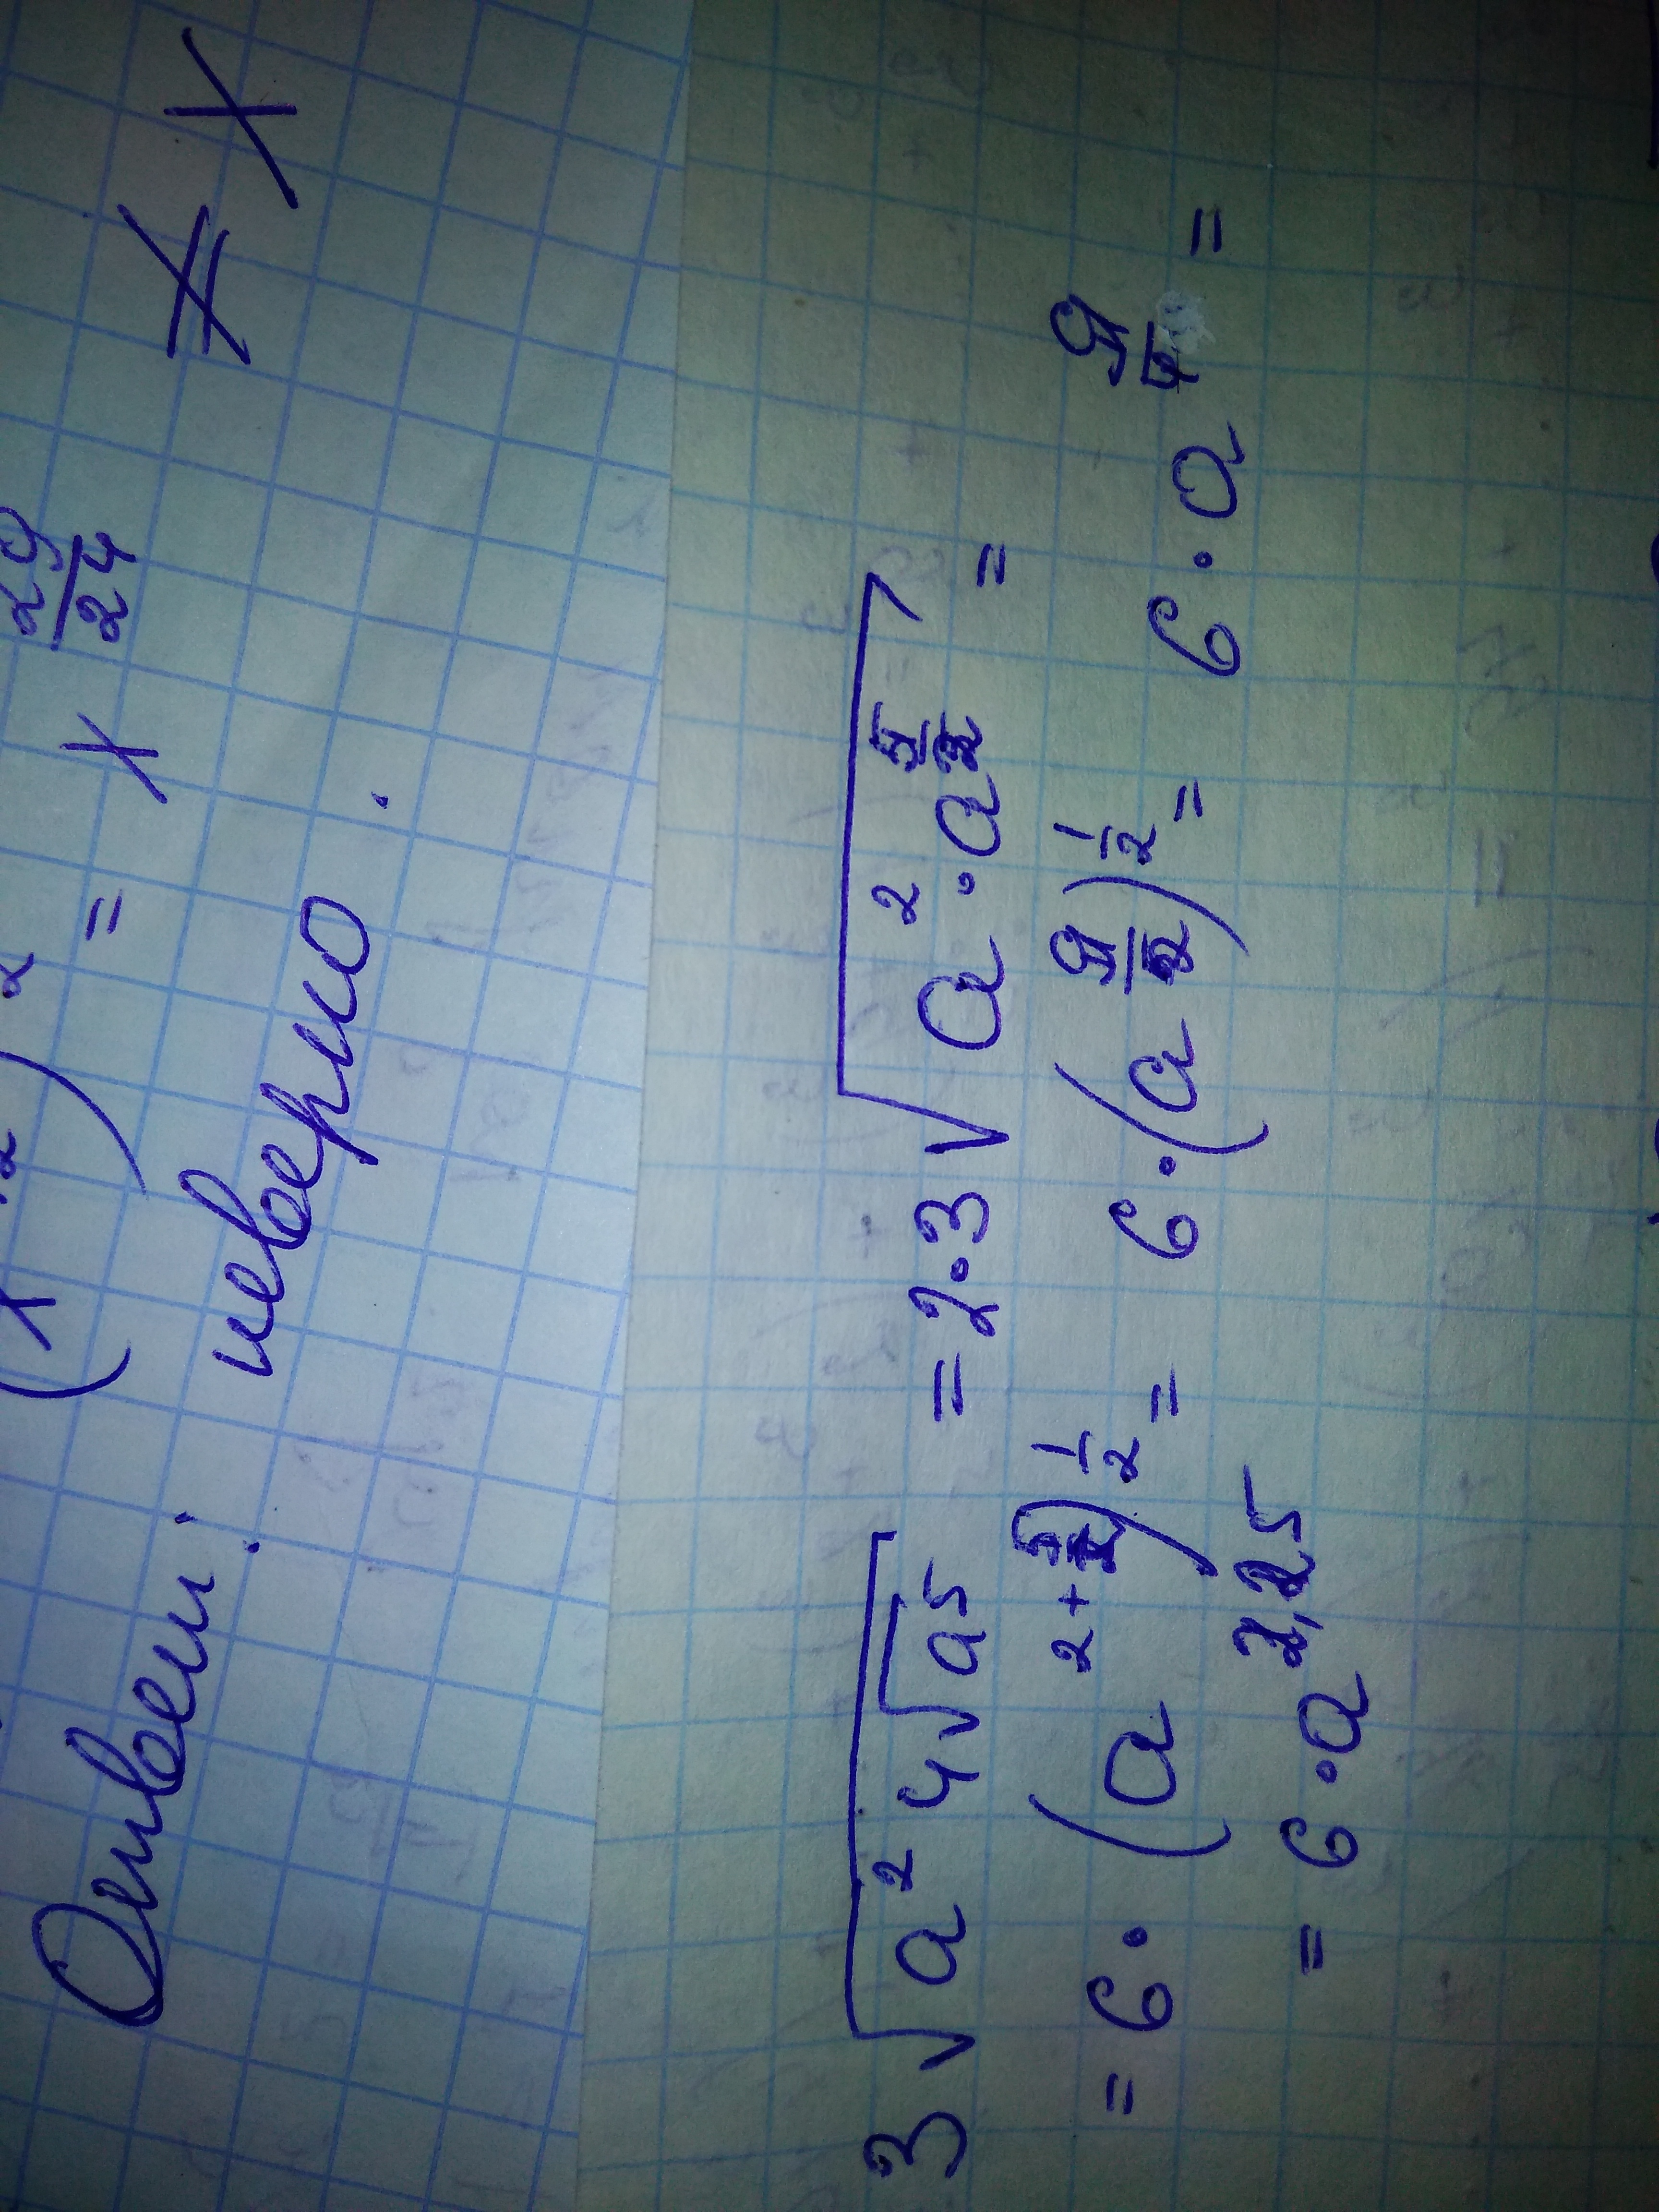 ( x ... ) = x 29/24 ≠ x
Ответ: неверно.
3√(a² 4√(a⁵)) = 2·3√(a²·a^(5/2)) =
= 6·(a^(2+5/2))^(1/2) = 6·(a^(9/2))^(1/2) = 6·a^(9/4) =
= 6·a^(2,25)